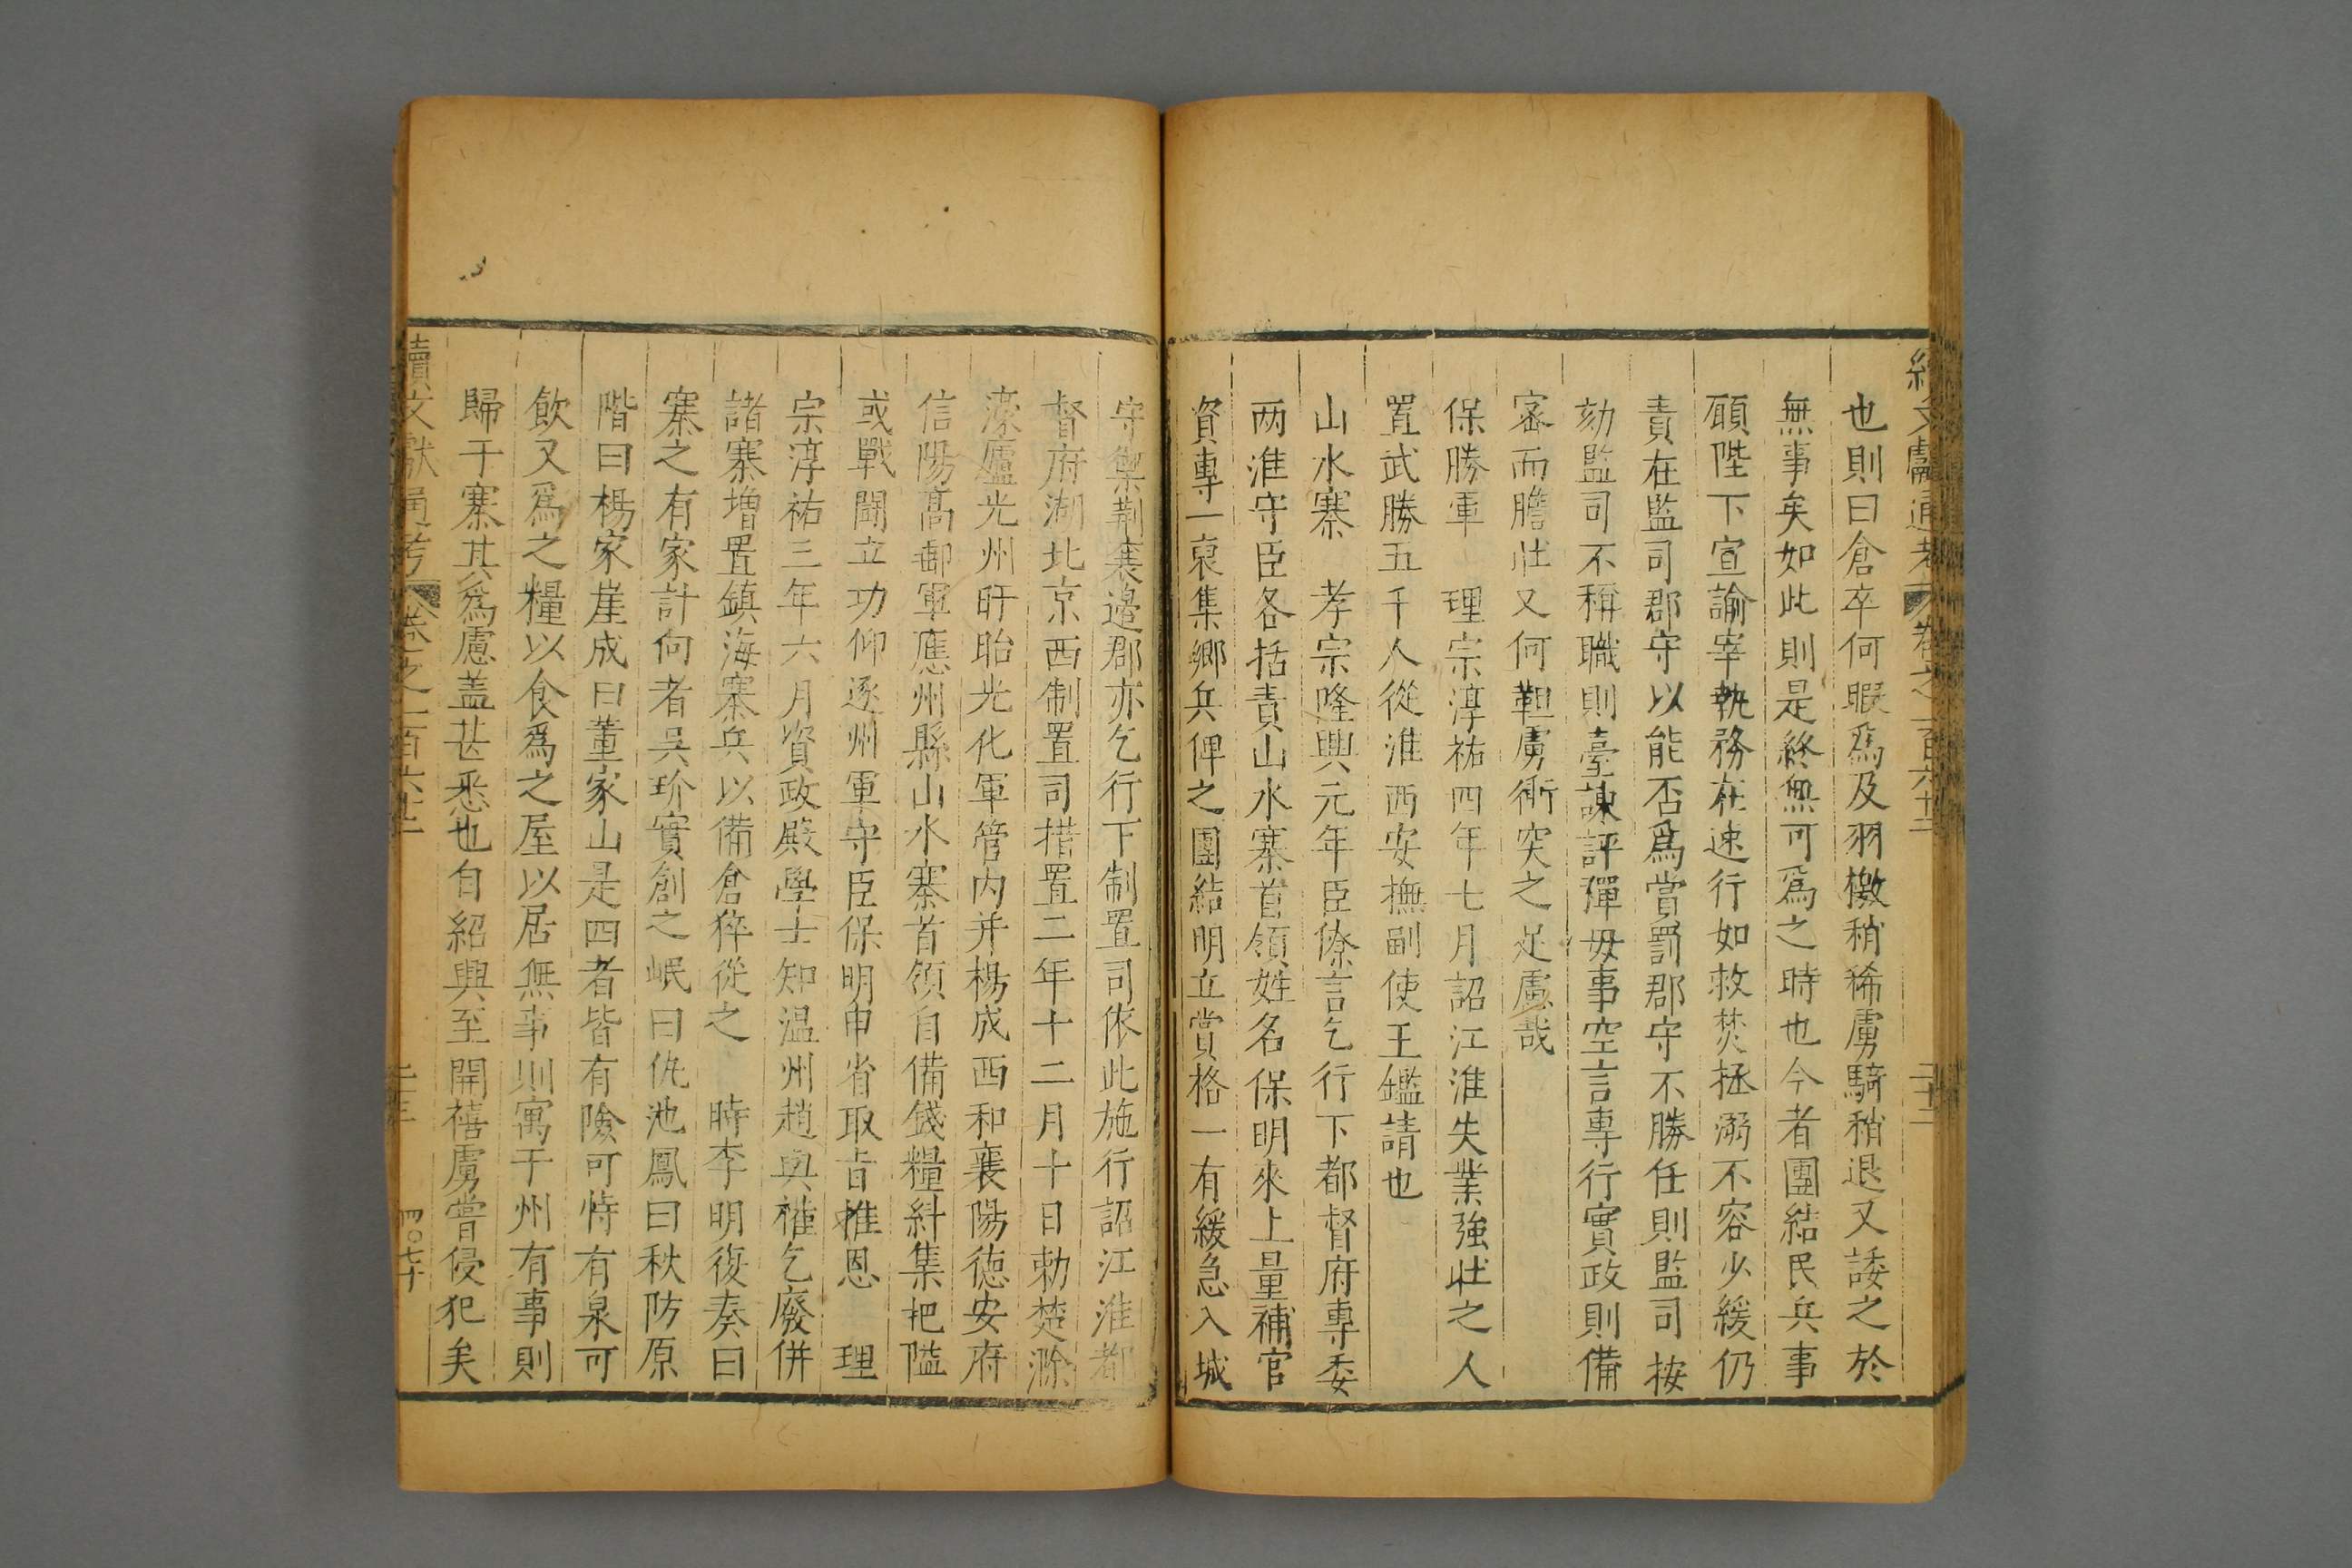 續文獻通考 卷之一百六十二 二十二
也則曰倉卒何暇爲及羽檄稍稀虜騎稍退又諉之於
無事矣如此則是終無可爲之時也今者團結民兵事
願陛下宣諭宰執務在速行如救焚拯溺不容少緩仍
責在監司郡守以能否爲賞罰郡守不勝任則監司按
劾監司不稱職則臺諫評彈毋事空言專行實政則備
密而膽壯又何韃虜衝突之足慮哉
保勝軍 理宗淳祐四年七月詔江淮失業強壯之人
置武勝五千人從淮西安撫副使王鑑請也
山水寨 孝宗隆興元年臣僚言乞行下都督府專委
两淮守臣各括責山水寨首領姓名保明來上量補官
資專一裒集鄉兵俾之團結明立賞格一有緩急入城
守禦荆襄邉郡亦乞行下制置司依此施行詔江淮都
督府湖北京西制置司措置二年十二月十日勅楚滁
濠廬光州盱眙光化軍管内并楊成西和襄陽德安府
信陽髙郵軍應州縣山水寨首領自備錢糧糾集把隘
或戰鬬立功仰逐州軍守臣保明申省取旨推恩 理
宗淳祐三年六月資政殿學士知温州趙與𢠸乞廢併
諸寨増置鎮海寨兵以備倉猝從之 時李明復奏曰
寨之有家計何者吳玠實創之岷曰仇池鳳曰秋防原
階曰楊家崖成曰董家山是四者皆有險可恃有泉可
飲又爲之糧以食爲之屋以居無事則寓于州有事則
歸于寨其爲慮盖甚悉也自紹興至開禧虜嘗侵犯矣
續文獻通考 卷之一百六十二 二十三 四〇七十